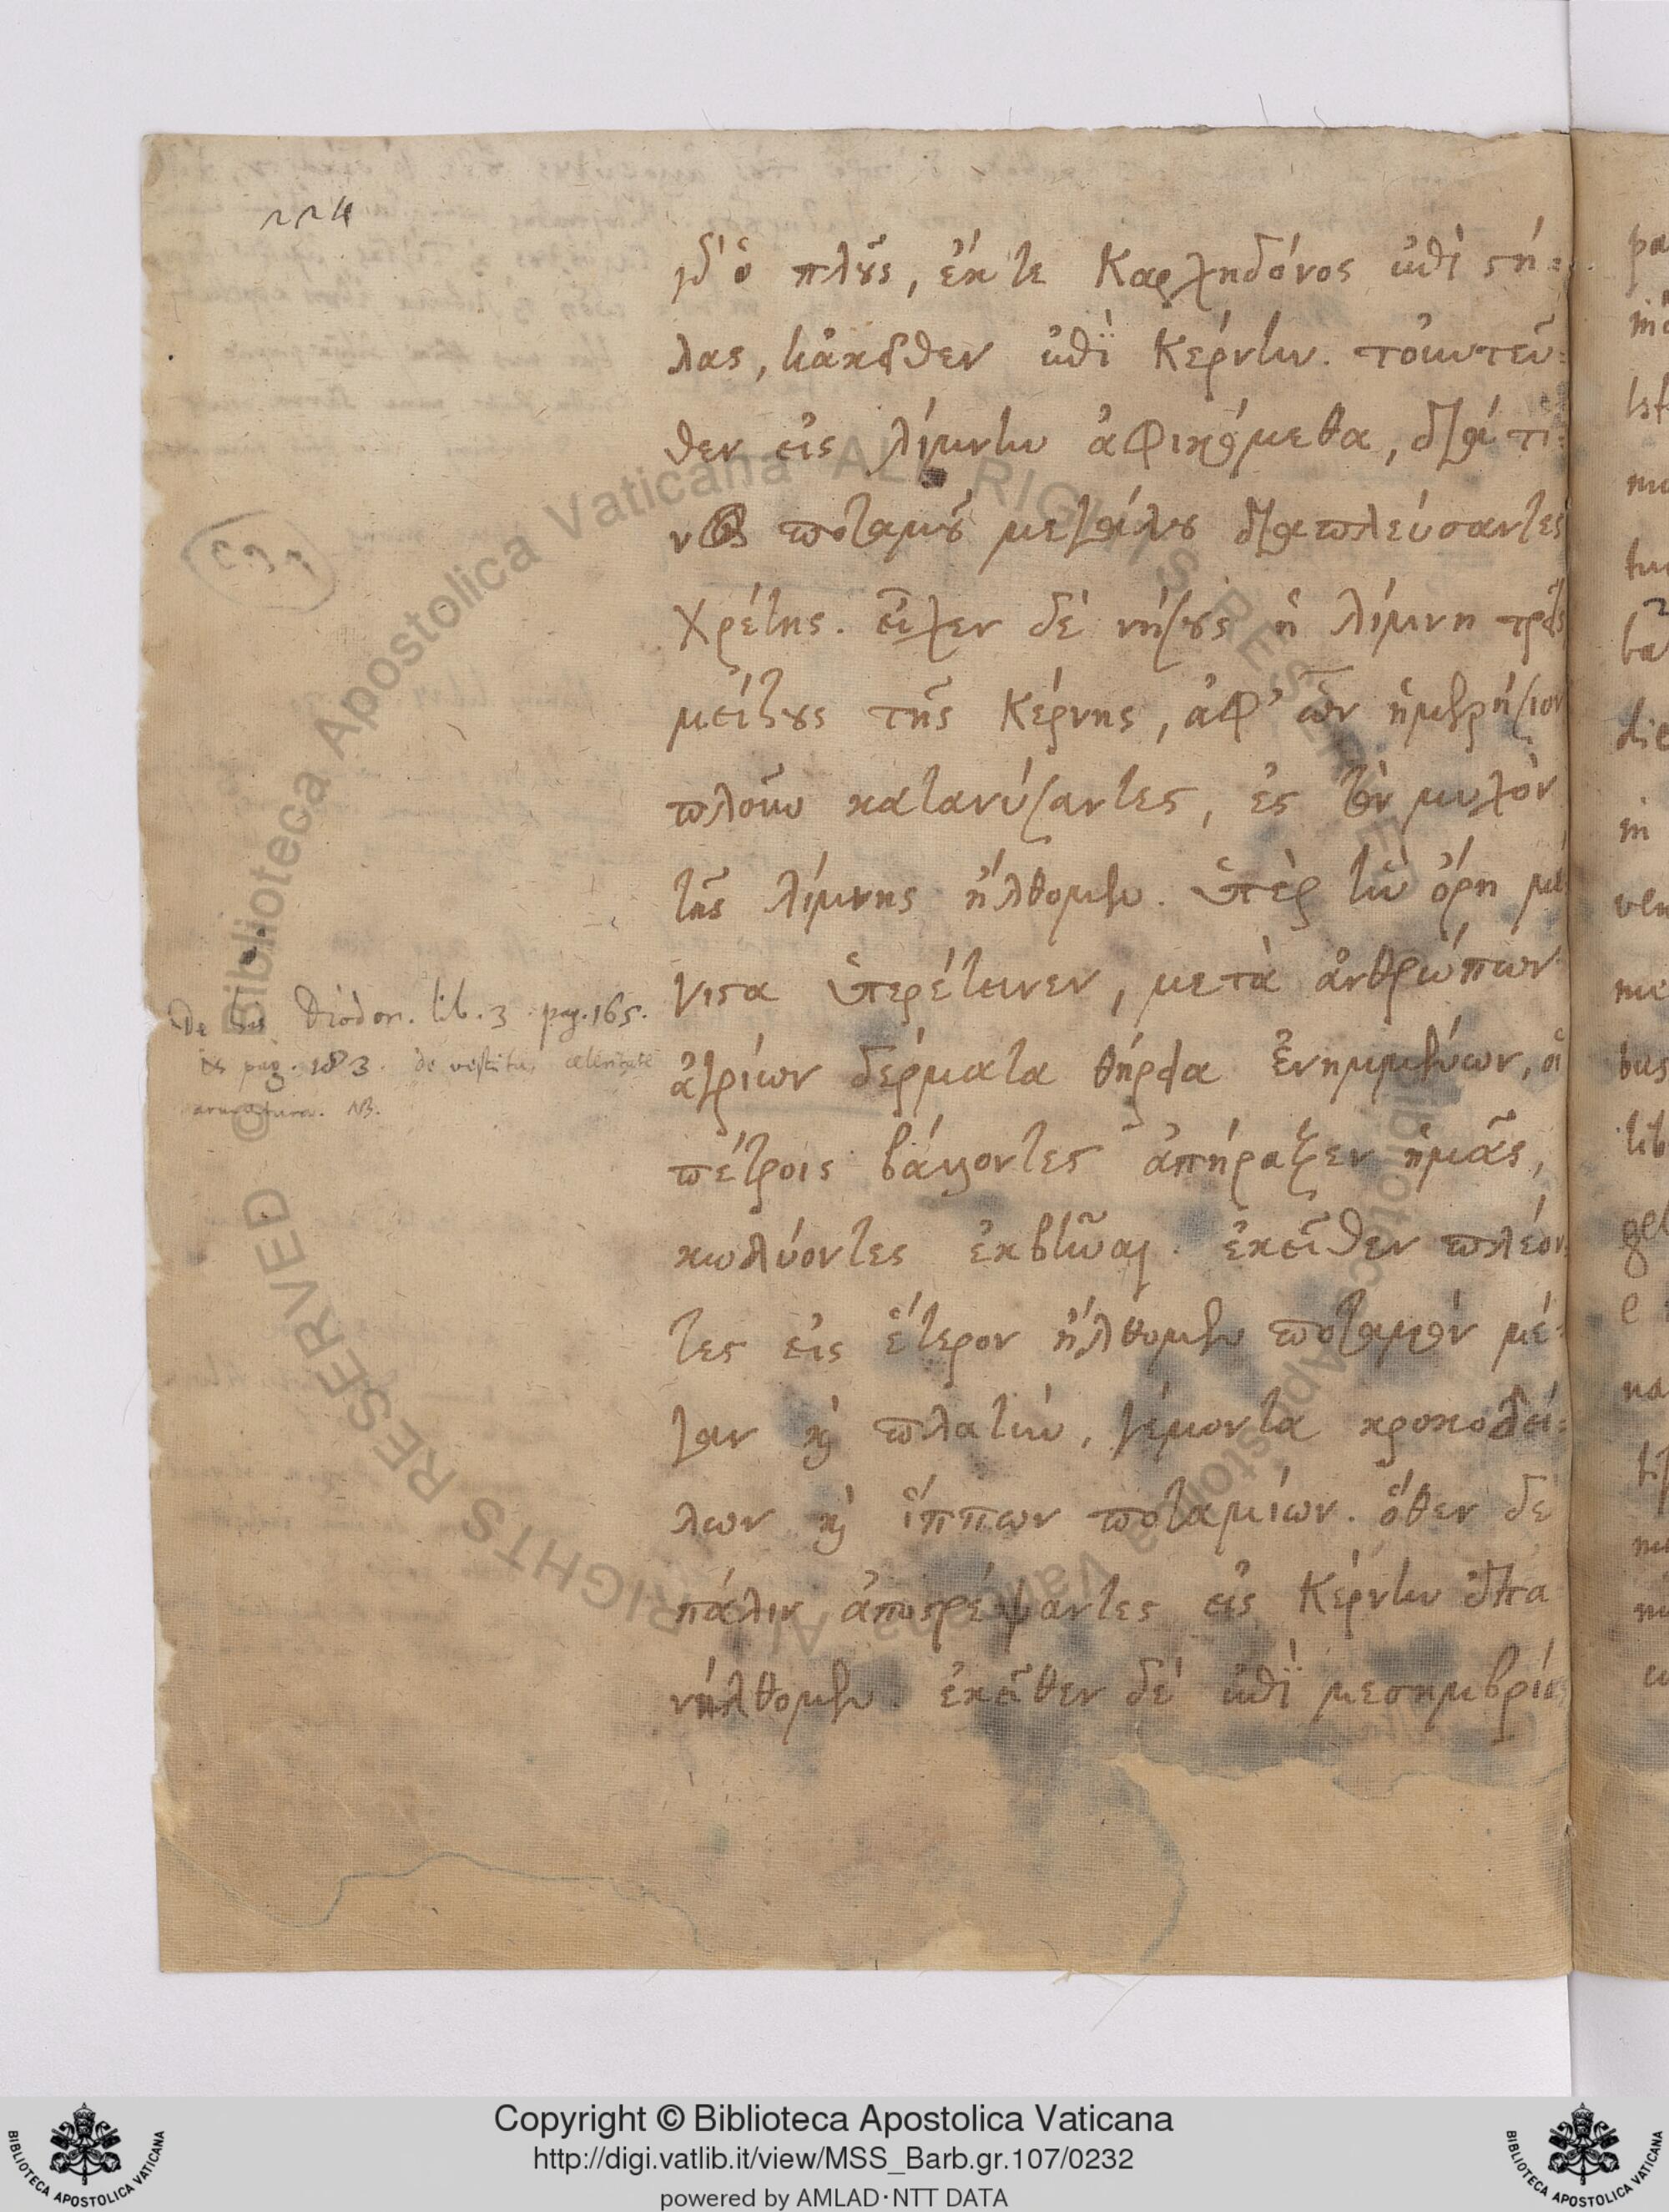 224
γδ' ὁ πλοῦς, ἔκ τε Καρχηδόνος ἐπὶ στή-
λας, κἀκεῖθεν ἐπὶ Κέρνην. τοὐντεῦ-
θεν εἰς λίμνην ἀφικόμεθα, διά τι-
νος ποταμοῦ μεγάλου διαπλεύσαντες
Χρέτης. εἶχεν δὲ νήσους ἡ λίμνη τρεῖς
μείζους τῆς Κέρνης, ἀφ' ὧν ἡμερήσιον
πλοῦν κατανύσαντες, ἐς τὸν μυχὸν
τῆς λίμνης ἤλθομεν. ὑπὲρ ἣν ὄρη μέ
γιστα ὑπερέτεινεν, μετὰ ἀνθρώπων
ἀγρίων δέρματα θήρεια ἐνημμένων, οἳ
πέτροις βάλλοντες ἀπήραξεν ἡμᾶς,
κωλύοντες ἐκβῆναι. ἐκεῖθεν πλέον
τες εἰς ἕτερον ἤλθομεν ποταμὸν μέ-
γαν καὶ πλατὺν, γέμοντα κροκοδεί-
λων καὶ ἵππων ποταμίων. ὅθεν δὲ
πάλιν ἀποστρέψαντες εἰς Κέρνην ἐπα
νήλθομεν. ἐκεῖθεν δὲ ἐπὶ μεσημβρίας
De his Diodor. lib. 3. pag. 165.
et pag. 183. de vestitu, celeritate
armatura. NB.
© Biblioteca Apostolica Vaticana ALL RIGHTS RESERVED
© Biblioteca Apostolica Vaticana ALL RIGHTS RESERVED
Copyright © Biblioteca Apostolica Vaticana
http://digi.vatlib.it/view/MSS_Barb.gr.107/0232
powered by AMLAD·NTT DATA
BIBLIOTECA APOSTOLICA VATICANA
BIBLIOTECA APOSTOLICA VATICANA